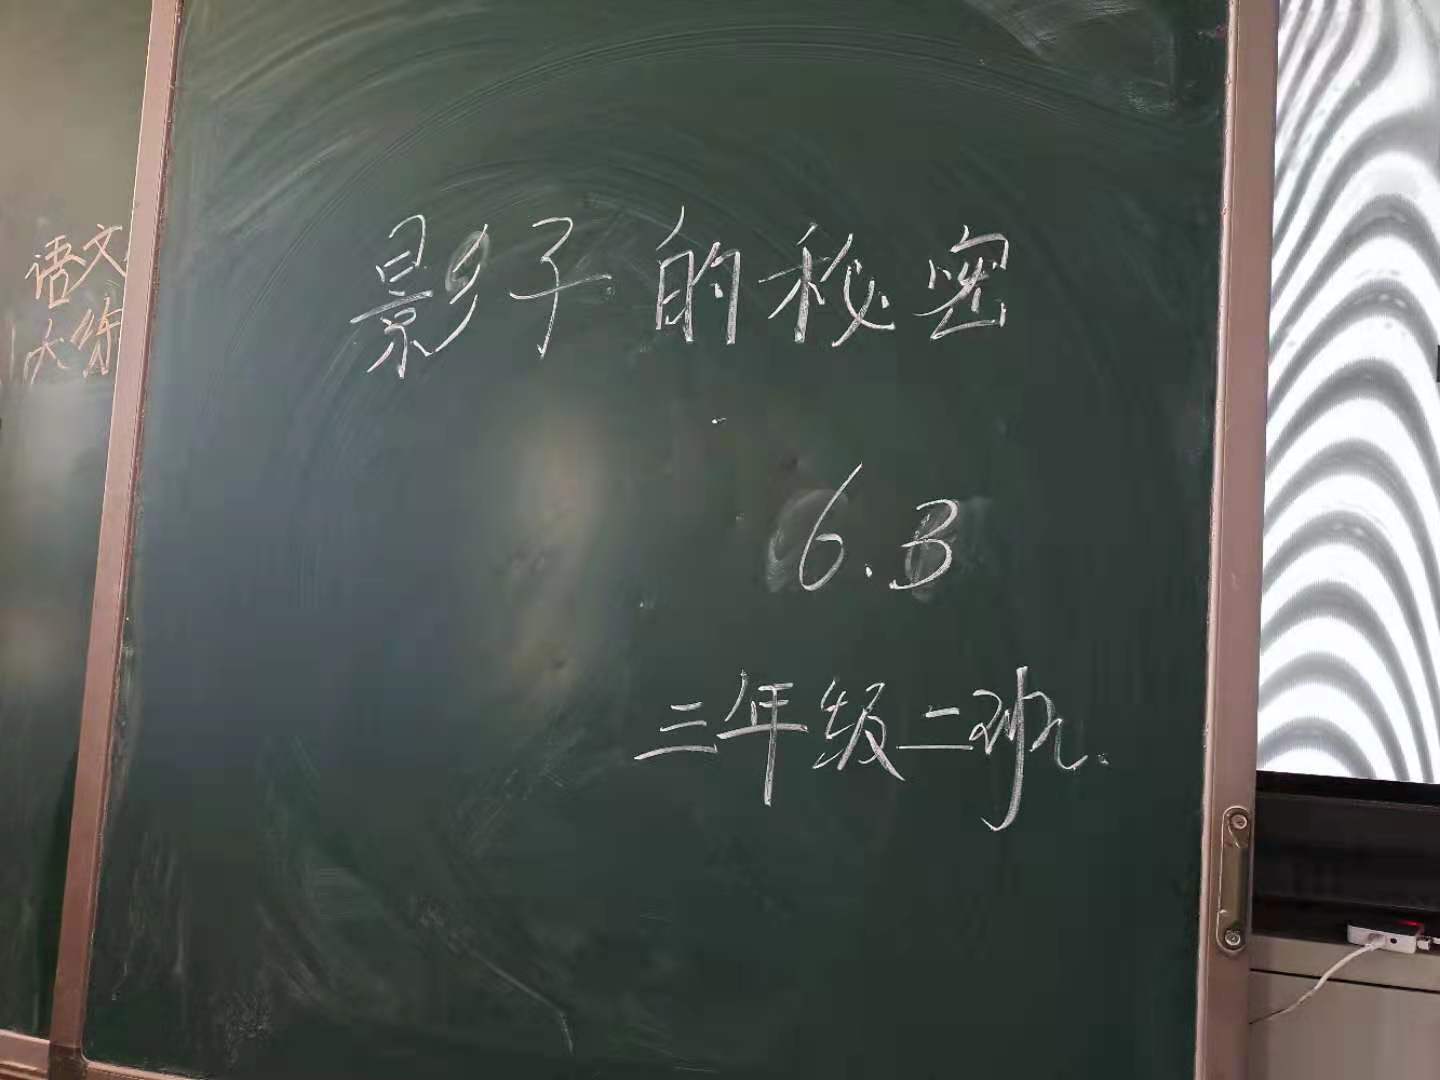 语文
大练
影子的秘密
6.3
三年级二班.